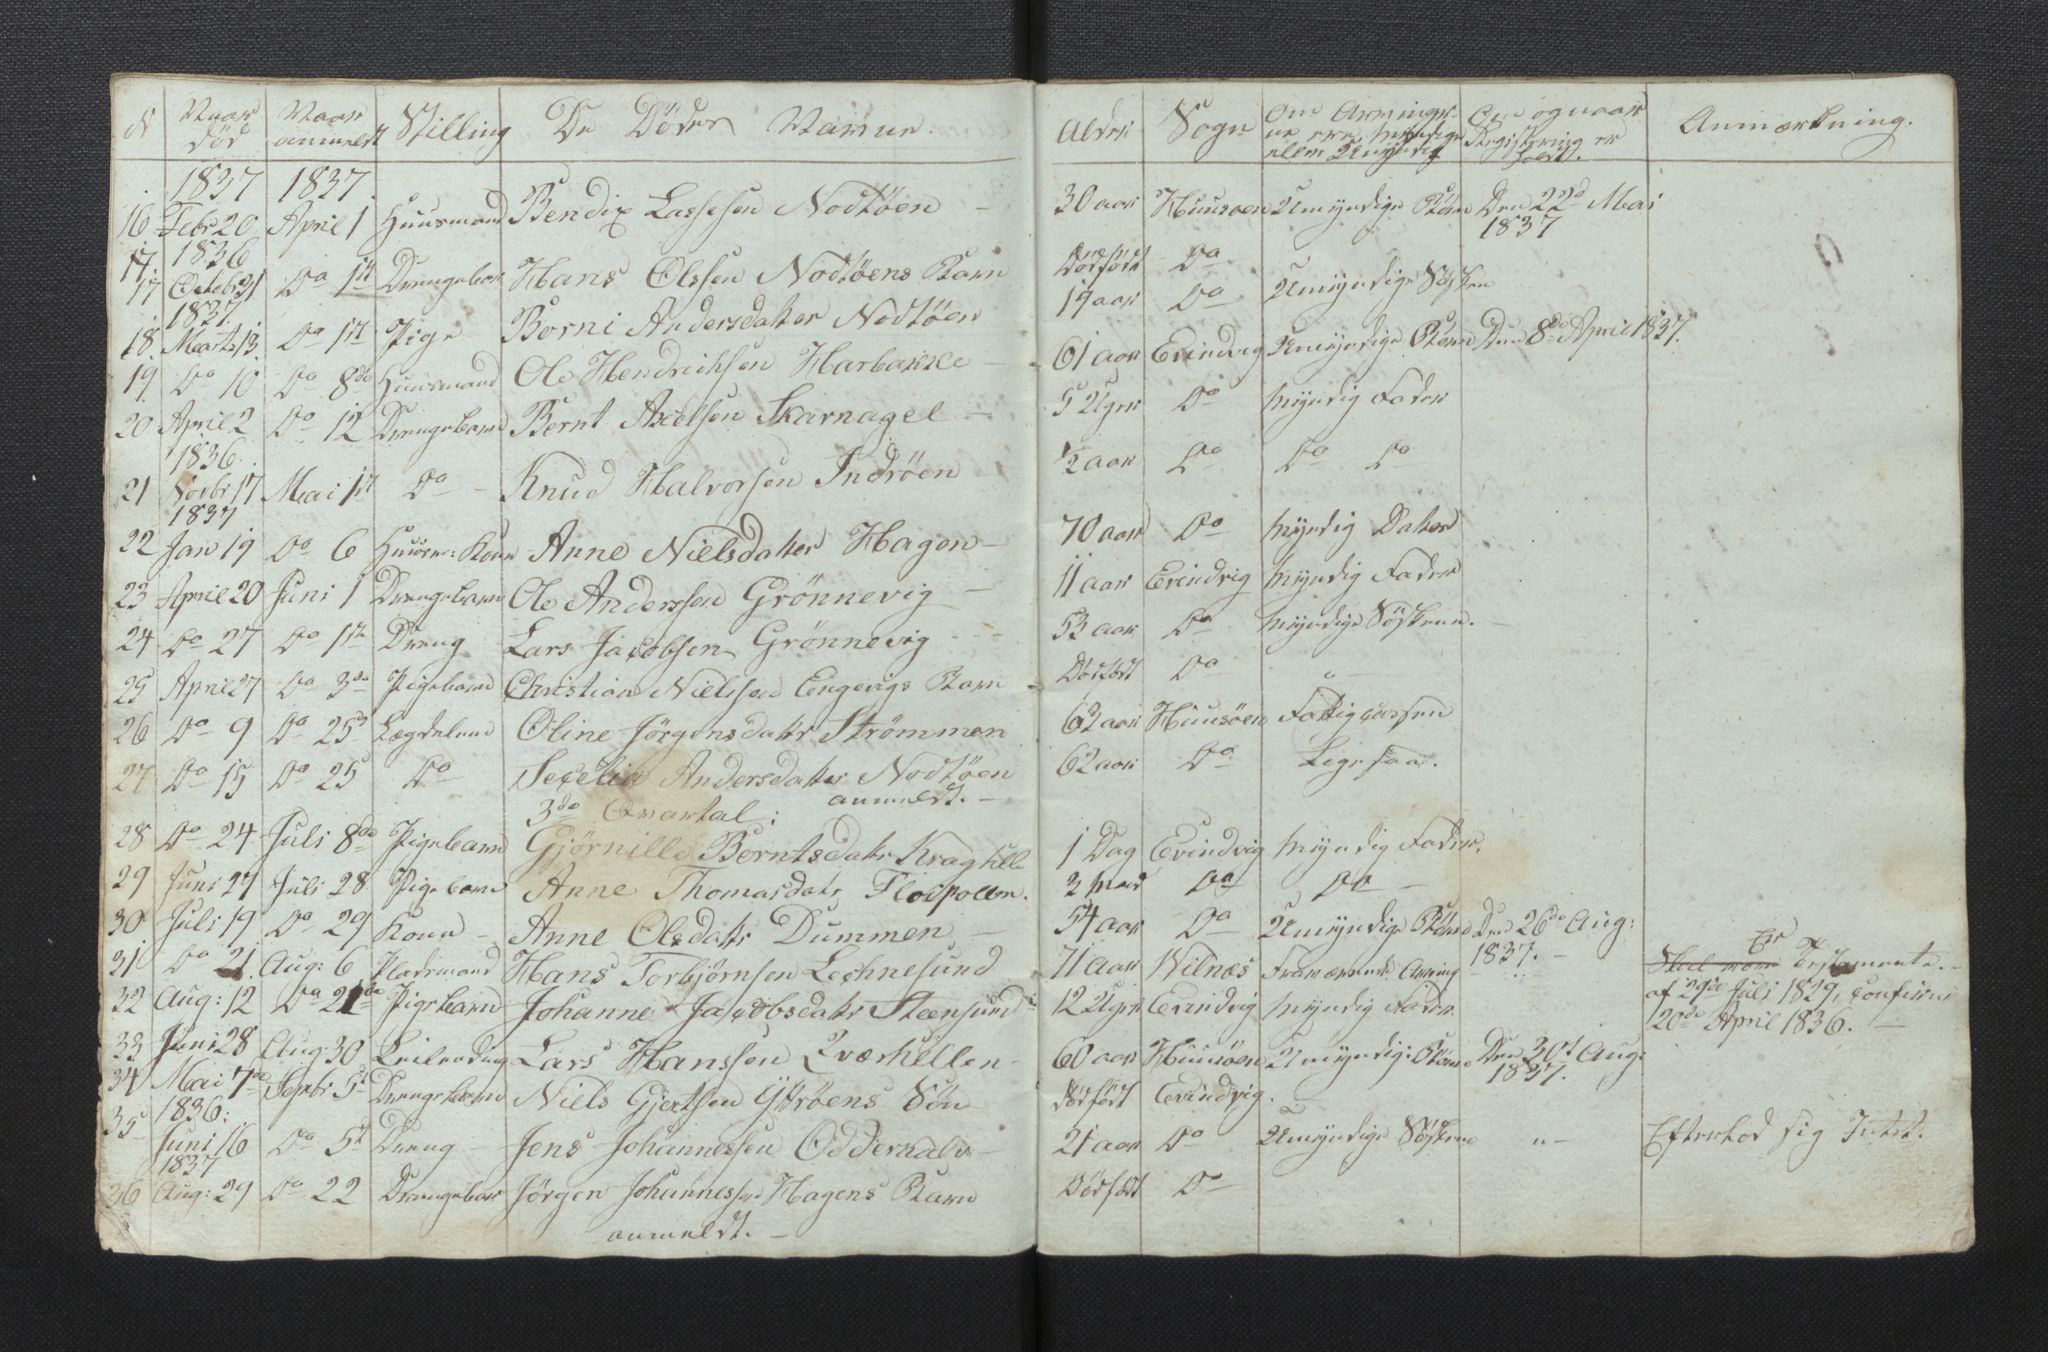 N Naar død Naar anmeldt Stilling De Dødes Navne. Alder Sogn Om Arvingerne ere Myndige eller Umyndig Om og naar Registrering er holdt. Anmærkning.
1837 1837.
16 Febr 20 April 1 Huusmand Bendix Lassesen Nodtøen – 30 aar Huusøen Umyndige Børn Den 22d Mai 1837
17. 1836
17 Octob 31 Do 1st Drengebar Hans Olssen Nodtøens Barn Dødfødt Do
1837
18. Marts 13. Do 1st Pige Borni Andersdatter Nodtøen 19 aar Do Umyndige Søsken
19. Do 10 Do 8de Huusmand Ole Hendrichsen Harbakke – 61 aar Evindvig Umyndige Børn Den 8de April 1837.
20 April 2 Do 12 Drengebarn Bernt Axelsen Skarnagel – 5 Uger Do Myndig Fader
1836.
21 Novbr 17 Mai 1st Do – Knud Halvorsen Indrøen ½ aar Do Do Do
1837
22 Jan 19 Do 6 Huusm: Kone Anne Nielsdatter Hagen – 70 aar Do Myndig Datter
23 April 20 Juni 1 Drengebarn Ole Anderssen Grønnevig – 11 aar Evindvig Myndig Fader
24 Do 27 Do 1ste Dreng Lars Jacobsen Grønnevig – 53 aar Do Myndige Søskene. –
25 April 27 Do 3de Pigebarn Christian Nielssen Engevigs Barn Dødfødt Do " –
26 Do 9 Do 25d Lægdelem Oline Jørgensdatr Strømmen 63 aar Huusøen Fattigcassen
27 Do 15 Do 25 Do Secelia Andersdatter Nodtøen 62 aar Do Ligesaa.
3de Qvartal: anmeldt. –
28 Do 24 Juli 8de Pigebarn Gjørnille Berntsdatr Kraghelle 1 Dag Evindvig Myndig Fader.
29 Juni 27 Juli 28 Pigebarn Anne Thomasdatr Floepollen. 2 Mdr Do Do –
30 Juli 19 Do 29 Kone – Anne Olsdatr Dummen – 54 aar Do Umyndige Børn Den 26de Aug: 1837. –
31 Do 21. Aug: 6 Pladsmand Hans Torbjørnsen Lechnesund 71 aar Wilnæs Fraværende Arving – " – Er Testamente. – af 29de Juli 1829, confirm 20de April 1836. –
32 Aug: 12 Do 21de Pigebarn Johanne Jacobsdatr Steensund 12 Uger Evindvig Myndig Fader.
33 Juni 28 Aug: 30 Leilending Lars Hanssen Qværhellen – 60 aar Huusøen Umyndig: Børn Den 30t Aug: 1837.
34 Mai 7de Septbr 5t Drengebarn Niels Gjertsen Ytrøens Søn Dødfødt Evindvig.
1836:
35 Juni 16 Do 5t Dreng – Jens Johannessen Odderkalv – 21 aar Do Umyndige Søskene " – Efterlod sig Intet.
1837
36 Aug: 29 Do 22 Drengebar Jørgen Johannessen Hagens Barn Dødfødt Do
anmeldt. –